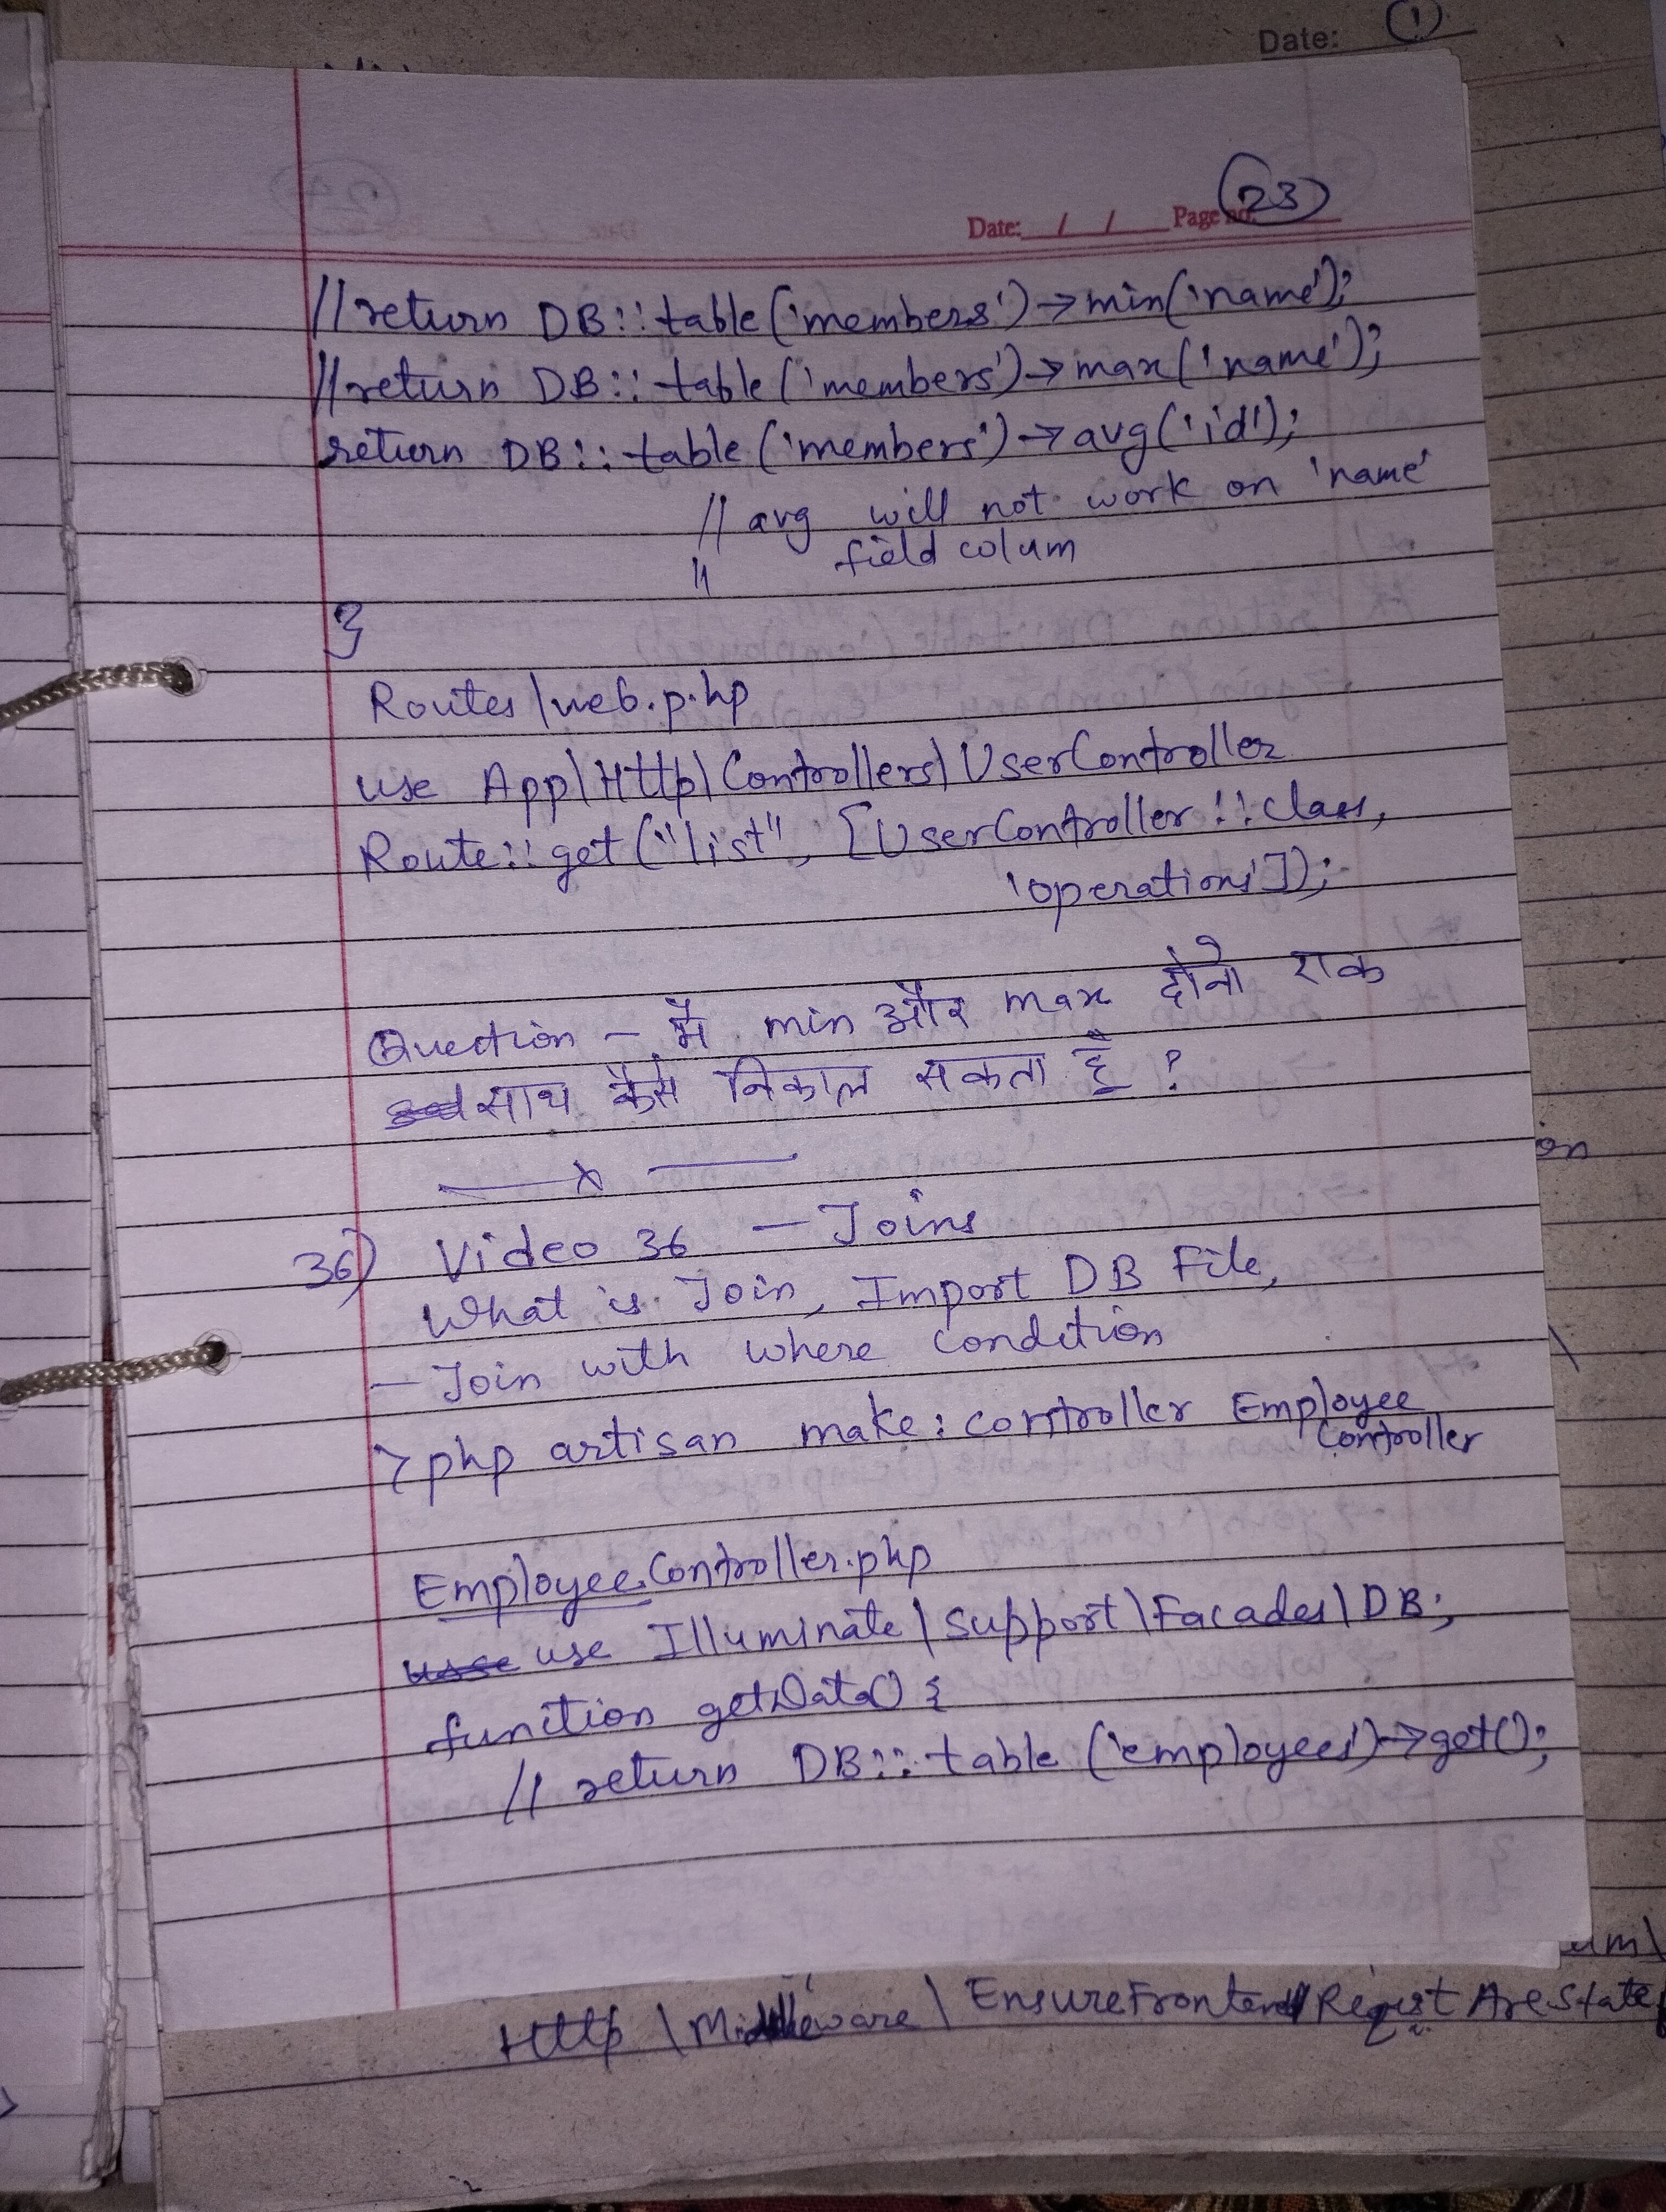 Date: 1
Date: / / Page no. 23
//return DB::table('members')->min('name');
//return DB::table('members')->max('name');
return DB::table('members')->avg('id');
// avg will not work on 'name'
" field colum
}
Routes\web.php
use App\Http\Controllers\UserController
Route::get("list", [UserController::class,
'operations']);
Question - मैं min और max दोनो एक
साथ कैसे निकाल सकता हूँ ?
— x —
36) Video 36 - Joins
What is Join, Import DB File,
- Join with where condition
> php artisan make:controller Employee
Controller
EmployeeController.php
use Illuminate\Support\Facades\DB;
function getData() {
// return DB::table('employees')->get();
Http\Middleware\EnsureFrontend Request Are State